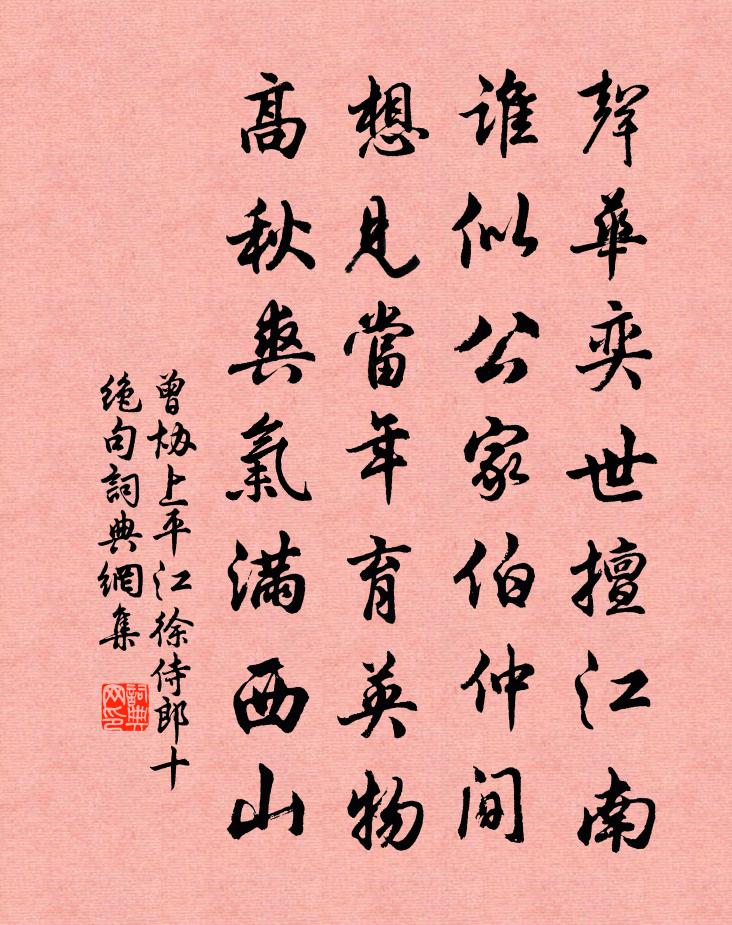 聲華奕世擅江南
誰似公家伯仲間
想見當年育英物
高秋爽氣滿西山
曾協上平江徐侍郎十
絶句詞典網集
詞典网印